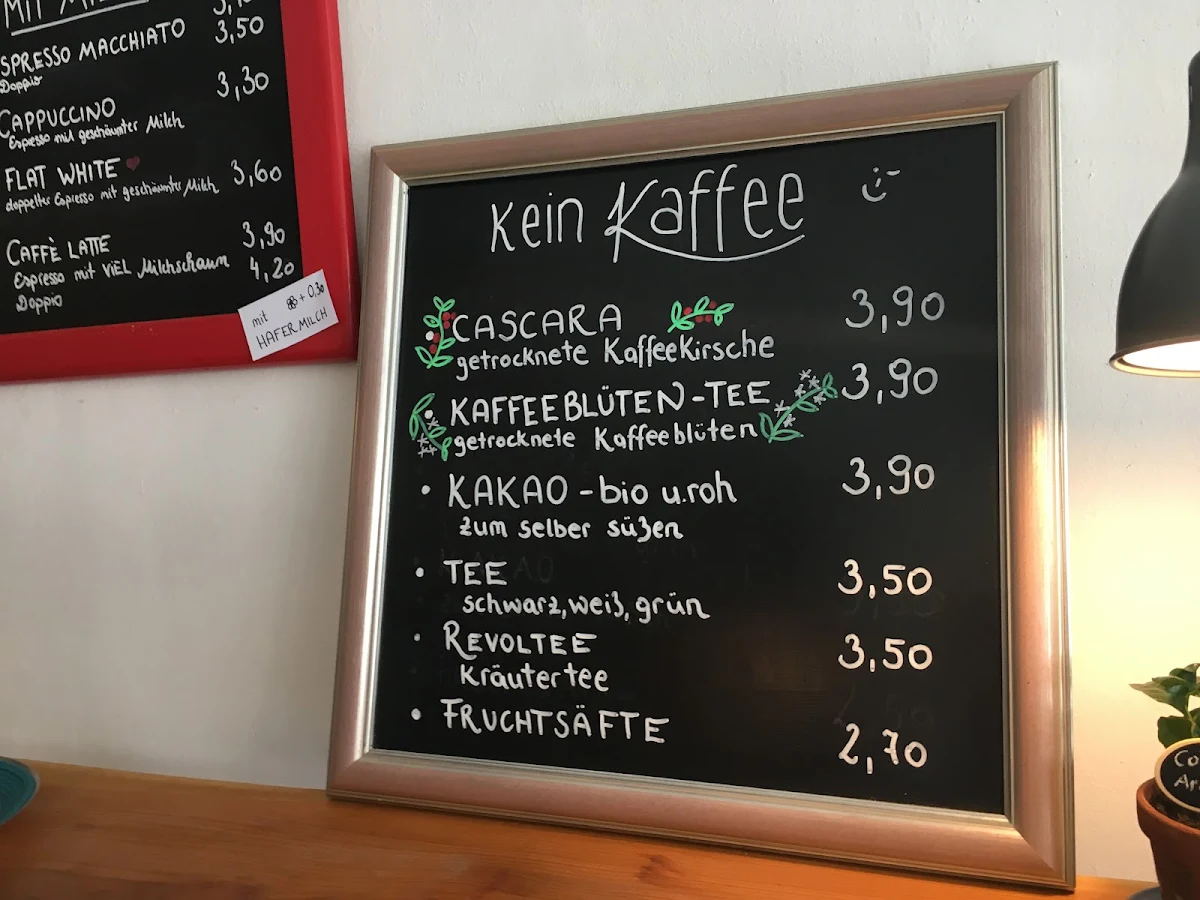 MIT
3,50
ESPRESSO MACCHIATO
Doppio
3,30
CAPPUCCINO
Espresso mit geschäumter Milch
FLAT WHITE
3,60
doppelter Espresso mit geschäumter Milch
CAFFÈ LATTE 3,90
Espresso mit VIEL Milchschaum 4,20
Doppio
mit + 0,30
HAFERMILCH
Kein Kaffee
CASCARA 3,90
getrocknete Kaffeekirsche
KAFFEEBLÜTEN-TEE 3,90
getrocknete Kaffeeblüten
• KAKAO - bio u.roh 3,90
zum selber süßen
• TEE 3,50
schwarz, weiß, grün
• REVOLTEE 3,50
Kräutertee
• FRUCHTSÄFTE 2,70
Co
Ar